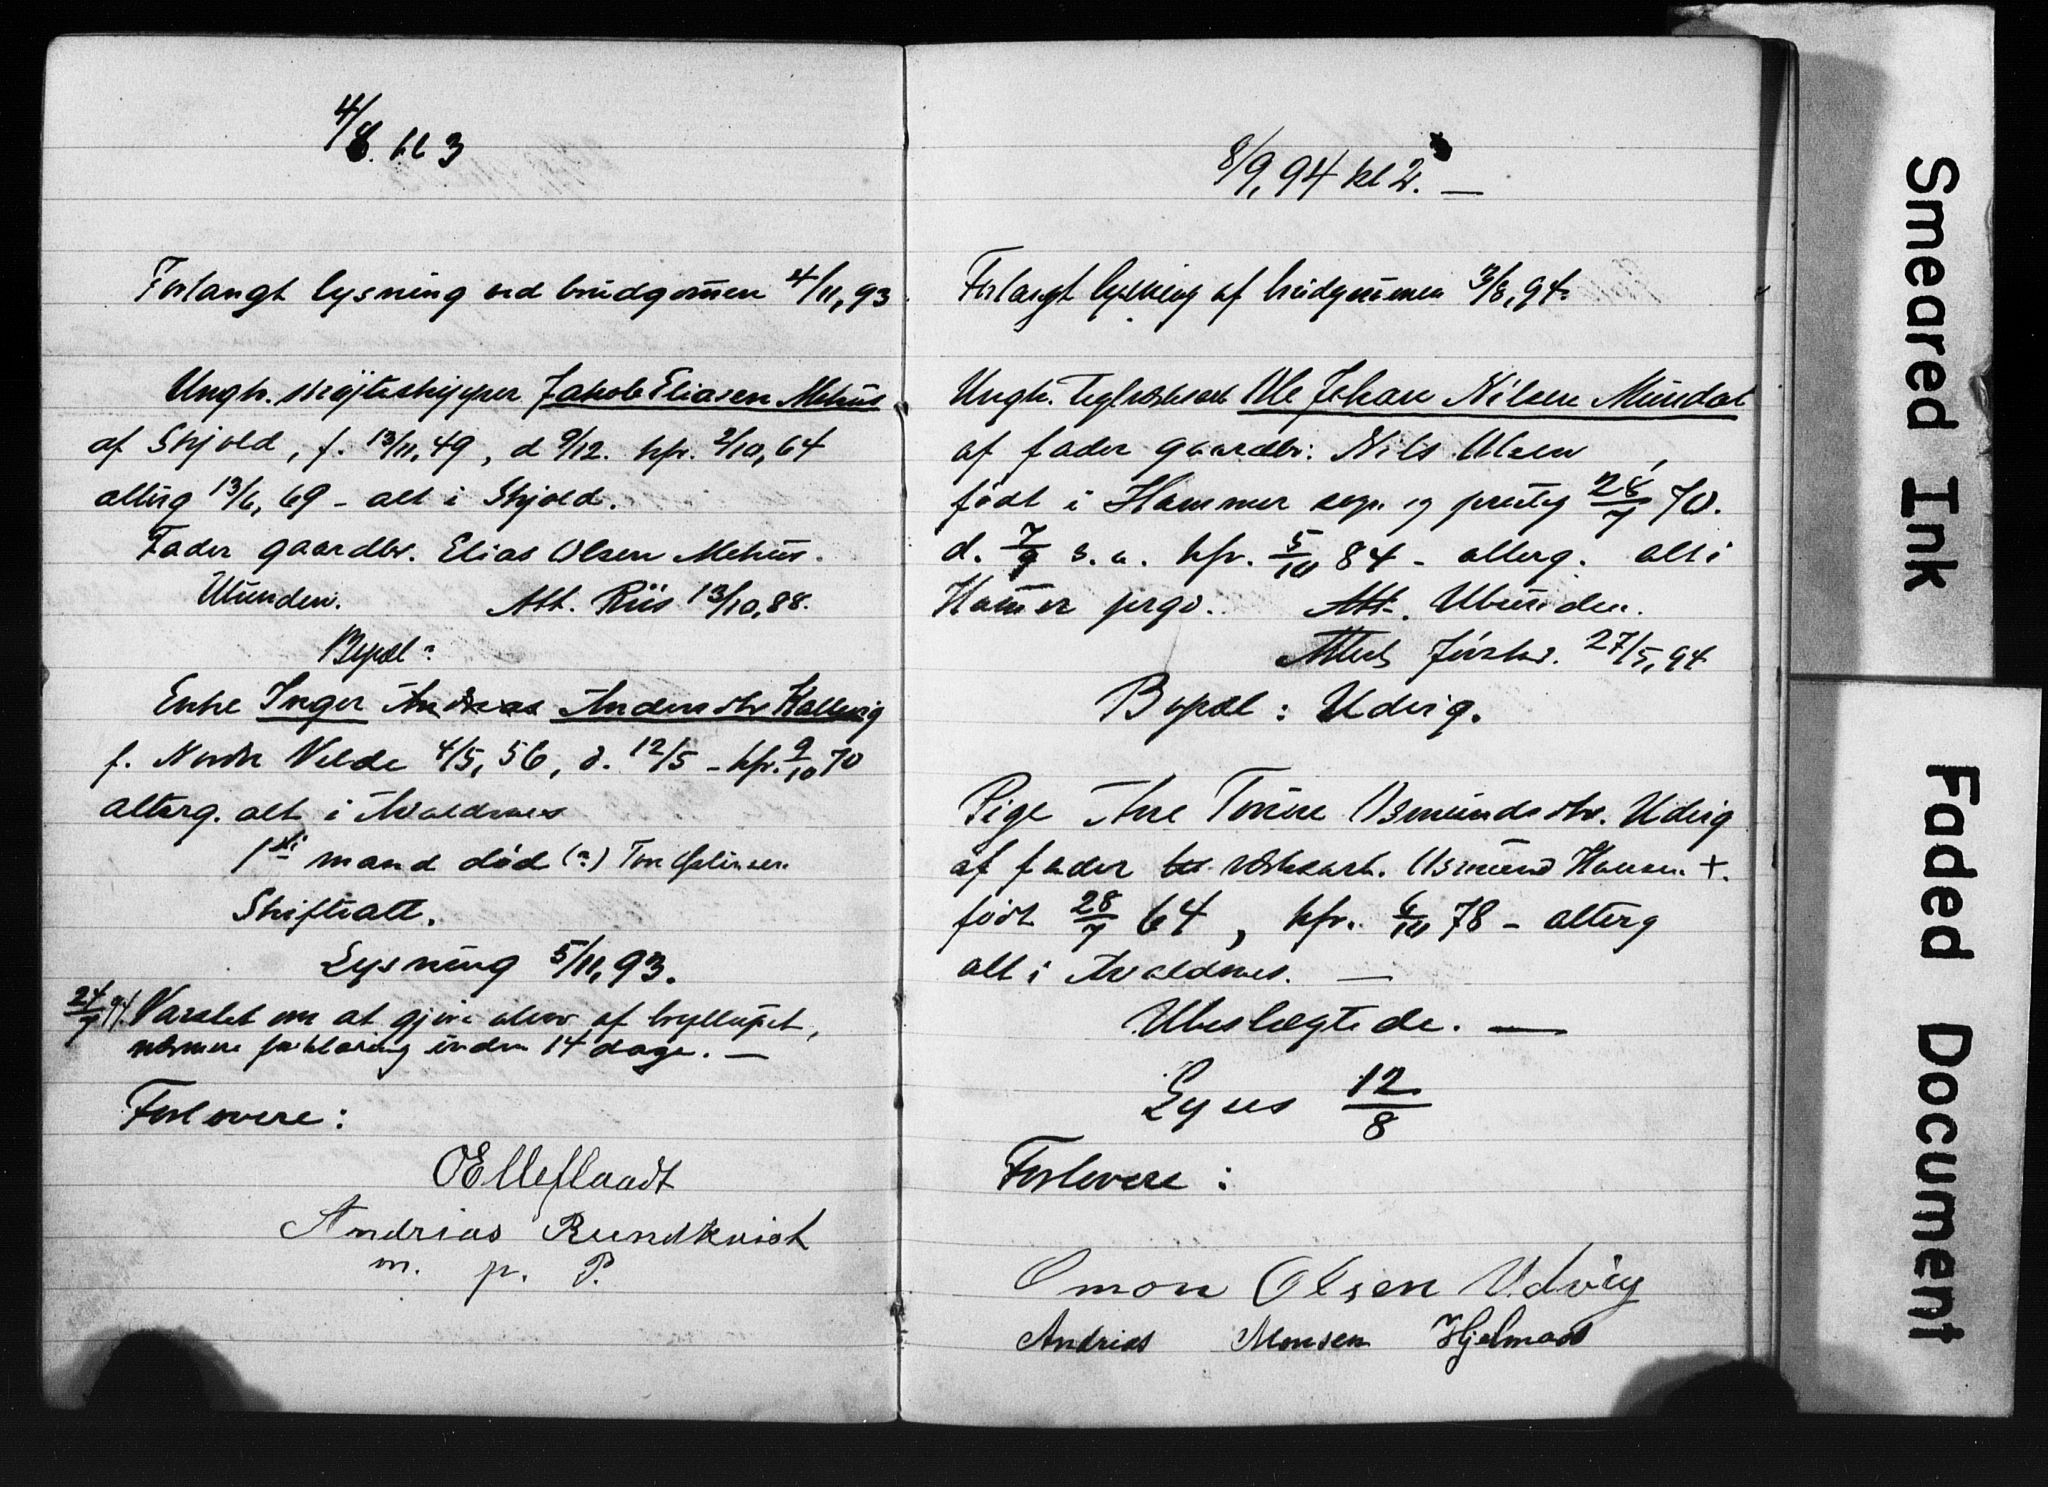 4/8. kl 3
Forlangt lysning ved brudgommen 4/11, 93
Ungk. skøjteskipper Jakob Eliasen Mehus
af Skjold, f. 13/11, 49, d 9/12. kfr. 2/10, 64
alterg 13/6, 69 - alt i Skjold.
Fader gaardbr. Elias Olsen Mehus.
Att. Riis 13/10, 88.
Bopæl:
Enke Inger Andreas Andersdtr Kallevig
f. Nordre Velde 4/5, 56, d. 12/5 - kfr. 9/10 70
alterg. alt i Avaldsnes
1ste mand død (?) Tore
Skifteatt.
Lysning 5/11, 93.
24/7 94. Varslet om at gjøre alvor af bryllupet,
nærmere forklaring inden 14 dage. —
Forlovere:
OElleflaadt
Andrias Rundkvist
m. p. P.
8/9, 94 kl 2. —
Forlangt lysning af brudgommen 3/8, 94.
Ungk. Ole Johan Nilsen Mundal
af fader gaardbr: Nils Olsen
født i Hammer sogn og prestg 28/7 70.
d. 7/9 s. a. kfr. 5/10 84 - alterg. alt i
Hamer prgd. Att.
Attest 27/5, 94
Bopæl: Udvig.
Pige Ane Torine Osmundsdtr. Udvig
af fader Osmund Hansen +.
født 28/7 64, kfr. 6/10 78 - alterg
alt i Avaldsnes. —
Ubeslægtede. —
Lyses 12/8
Forlovere:
Omon Olsen Udvig
Andrias Monsen Hjelmaas
Smeared Ink
Faded Document